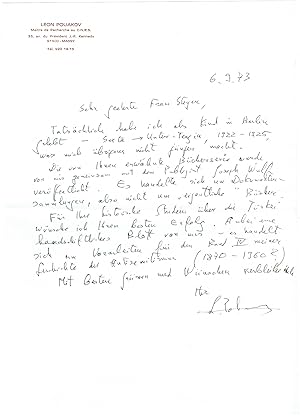 LEON POLIAKOV
Maître de Recherche au C.N.R.S.
6.9.73
Sehr geehrte Frau
Tatsächlich habe ich als Kind in Berlin
gelebt – –, 1922-1925,
was mich übrigens nicht jünger macht.
Die von Ihnen erwähnte Bücherserie wurde
von mir gemeinsam mit dem Publizist Joseph Wulf
veröffentlicht. Es handelte sich um Dokumenten-
sammlungen, also nicht um eigentliche Bücher.
Für Ihre historische Studien über die Türkei
wünsche ich Ihnen besten Erfolg. Anbei eine
handschriftliches Blatt von mir – es handelt
sich um Vorarbeiten für den Band IV meiner
Geschichte des Antisemitismus (1870-1960?)
Mit besten Grüssen und Wünschen verbleibe ich
Ihr